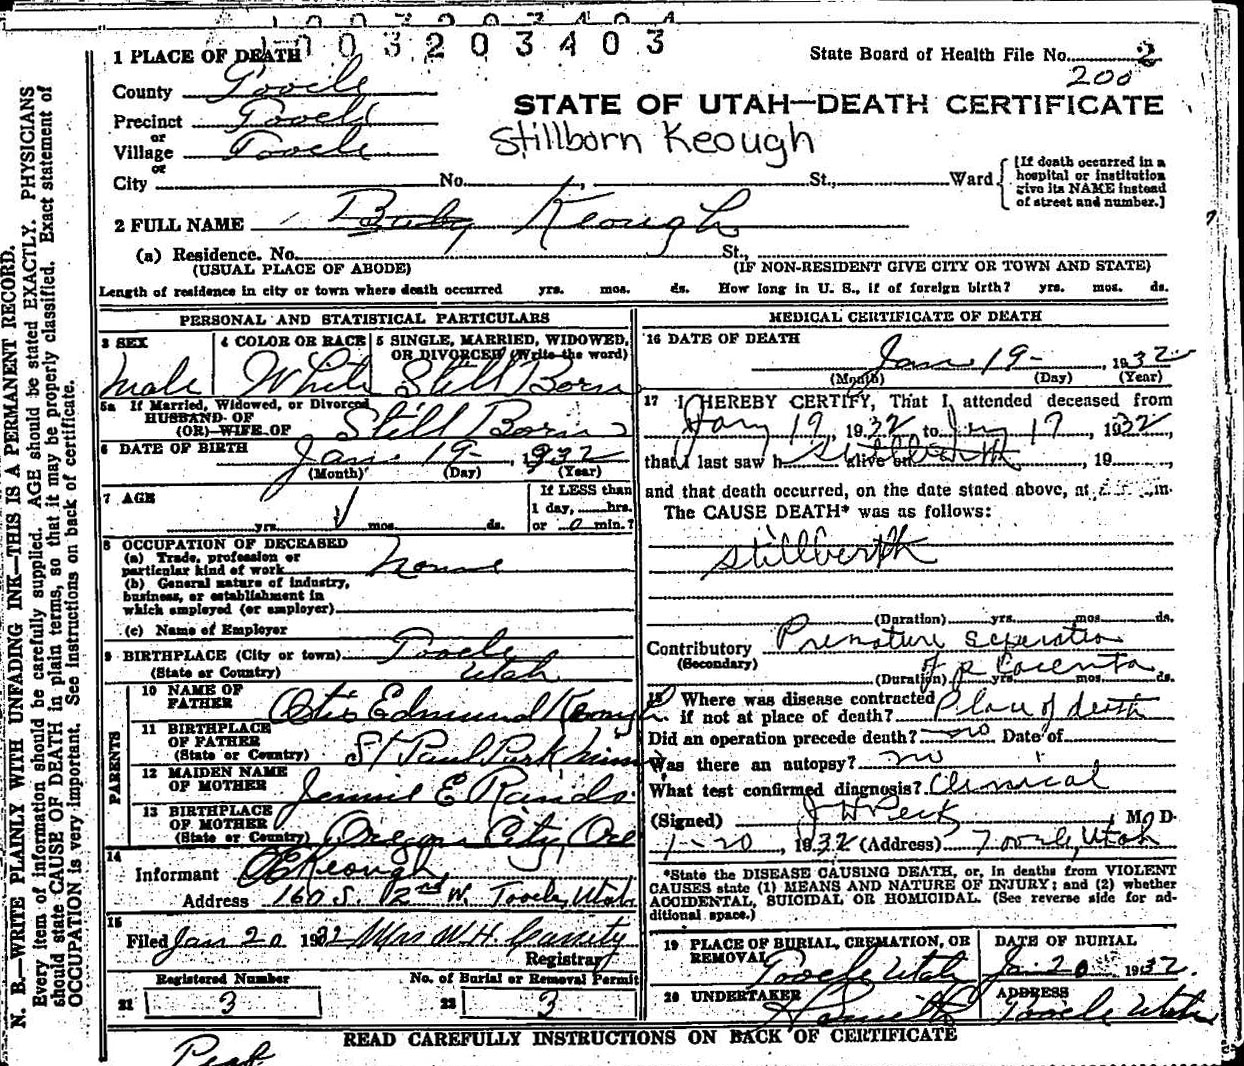 1003203403
1 PLACE OF DEATH
State Board of Health File No. 2
200
County Tooele
STATE OF UTAH—DEATH CERTIFICATE
Precinct Tooele
or
Stillborn Keough
Village Tooele
or
City No. , St., Ward
[If death occurred in a hospital or institution give its NAME instead of street and number.]
2 FULL NAME Baby Keough
(a) Residence. No. St.,
(USUAL PLACE OF ABODE) (IF NON-RESIDENT GIVE CITY OR TOWN AND STATE)
Length of residence in city or town where death occurred yrs. mos. ds. How long in U. S., if of foreign birth? yrs. mos. ds.
PERSONAL AND STATISTICAL PARTICULARS
3 SEX 4 COLOR OR RACE 5 SINGLE, MARRIED, WIDOWED,
OR DIVORCED (Write the word)
Male White Still Born
5a If Married, Widowed, or Divorced
HUSBAND OF
(OR) WIFE OF Still Born
6 DATE OF BIRTH Jan 19- 1932
(Month) (Day) (Year)
7 AGE
If LESS than
1 day, hrs.
yrs. mos. ds. or 0 min.?
8 OCCUPATION OF DECEASED
(a) Trade, profession or
particular kind of work None
(b) General nature of industry,
business, or establishment in
which employed (or employer)
(c) Name of Employer
9 BIRTHPLACE (City or town) Tooele
(State or Country) Utah
PARENTS
10 NAME OF
FATHER Otis Edmund Keough
11 BIRTHPLACE
OF FATHER
(State or Country) St Paul Park Minn
12 MAIDEN NAME
OF MOTHER Jennie E Rands
13 BIRTHPLACE
OF MOTHER
(State or Country) Oregon City, Ore
14
Informant O E Keough
Address 160 S. 2nd W. Tooele, Utah
15
Filed Jan 20 1932 Mrs W.H. Cassity
Registrar
Registered Number No. of Burial or Removal Permit
21 3 22 3
MEDICAL CERTIFICATE OF DEATH
16 DATE OF DEATH
Jan 19- , 1932
(Month) (Day) (Year)
17 I HEREBY CERTIFY, That I attended deceased from
Jany 19, 1932 to Jany 19, 1932,
that I last saw h alive on stillbirth , 19 ,
and that death occurred, on the date stated above, at m.
The CAUSE DEATH* was as follows:
stillbirth
(Duration) yrs. mos. ds.
Contributory Premature seperation
(Secondary) of placenta
(Duration) yrs. mos. ds.
18 Where was disease contracted
if not at place of death? Place of death
Did an operation precede death? no Date of
Was there an autopsy? no
What test confirmed diagnosis? Clinical
(Signed) J H Peck M D.
1-20 , 1932 (Address) Tooele, Utah
*State the DISEASE CAUSING DEATH, or, in deaths from VIOLENT
CAUSES state (1) MEANS AND NATURE OF INJURY; and (2) whether
ACCIDENTAL, SUICIDAL OR HOMICIDAL. (See reverse side for ad-
ditional space.)
19 PLACE OF BURIAL, CREMATION, OR
REMOVAL Tooele Utah
DATE OF BURIAL
Jan 20 1932.
20 UNDERTAKER
ADDRESS
Tooele Utah
READ CAREFULLY INSTRUCTIONS ON BACK OF CERTIFICATE
Peck
N. B.—WRITE PLAINLY WITH UNFADING INK—THIS IS A PERMANENT RECORD.
Every item of information should be carefully supplied. AGE should be stated EXACTLY. PHYSICIANS
should state CAUSE OF DEATH in plain terms, so that it may be properly classified. Exact statement of
OCCUPATION is very important. See instructions on back of certificate.